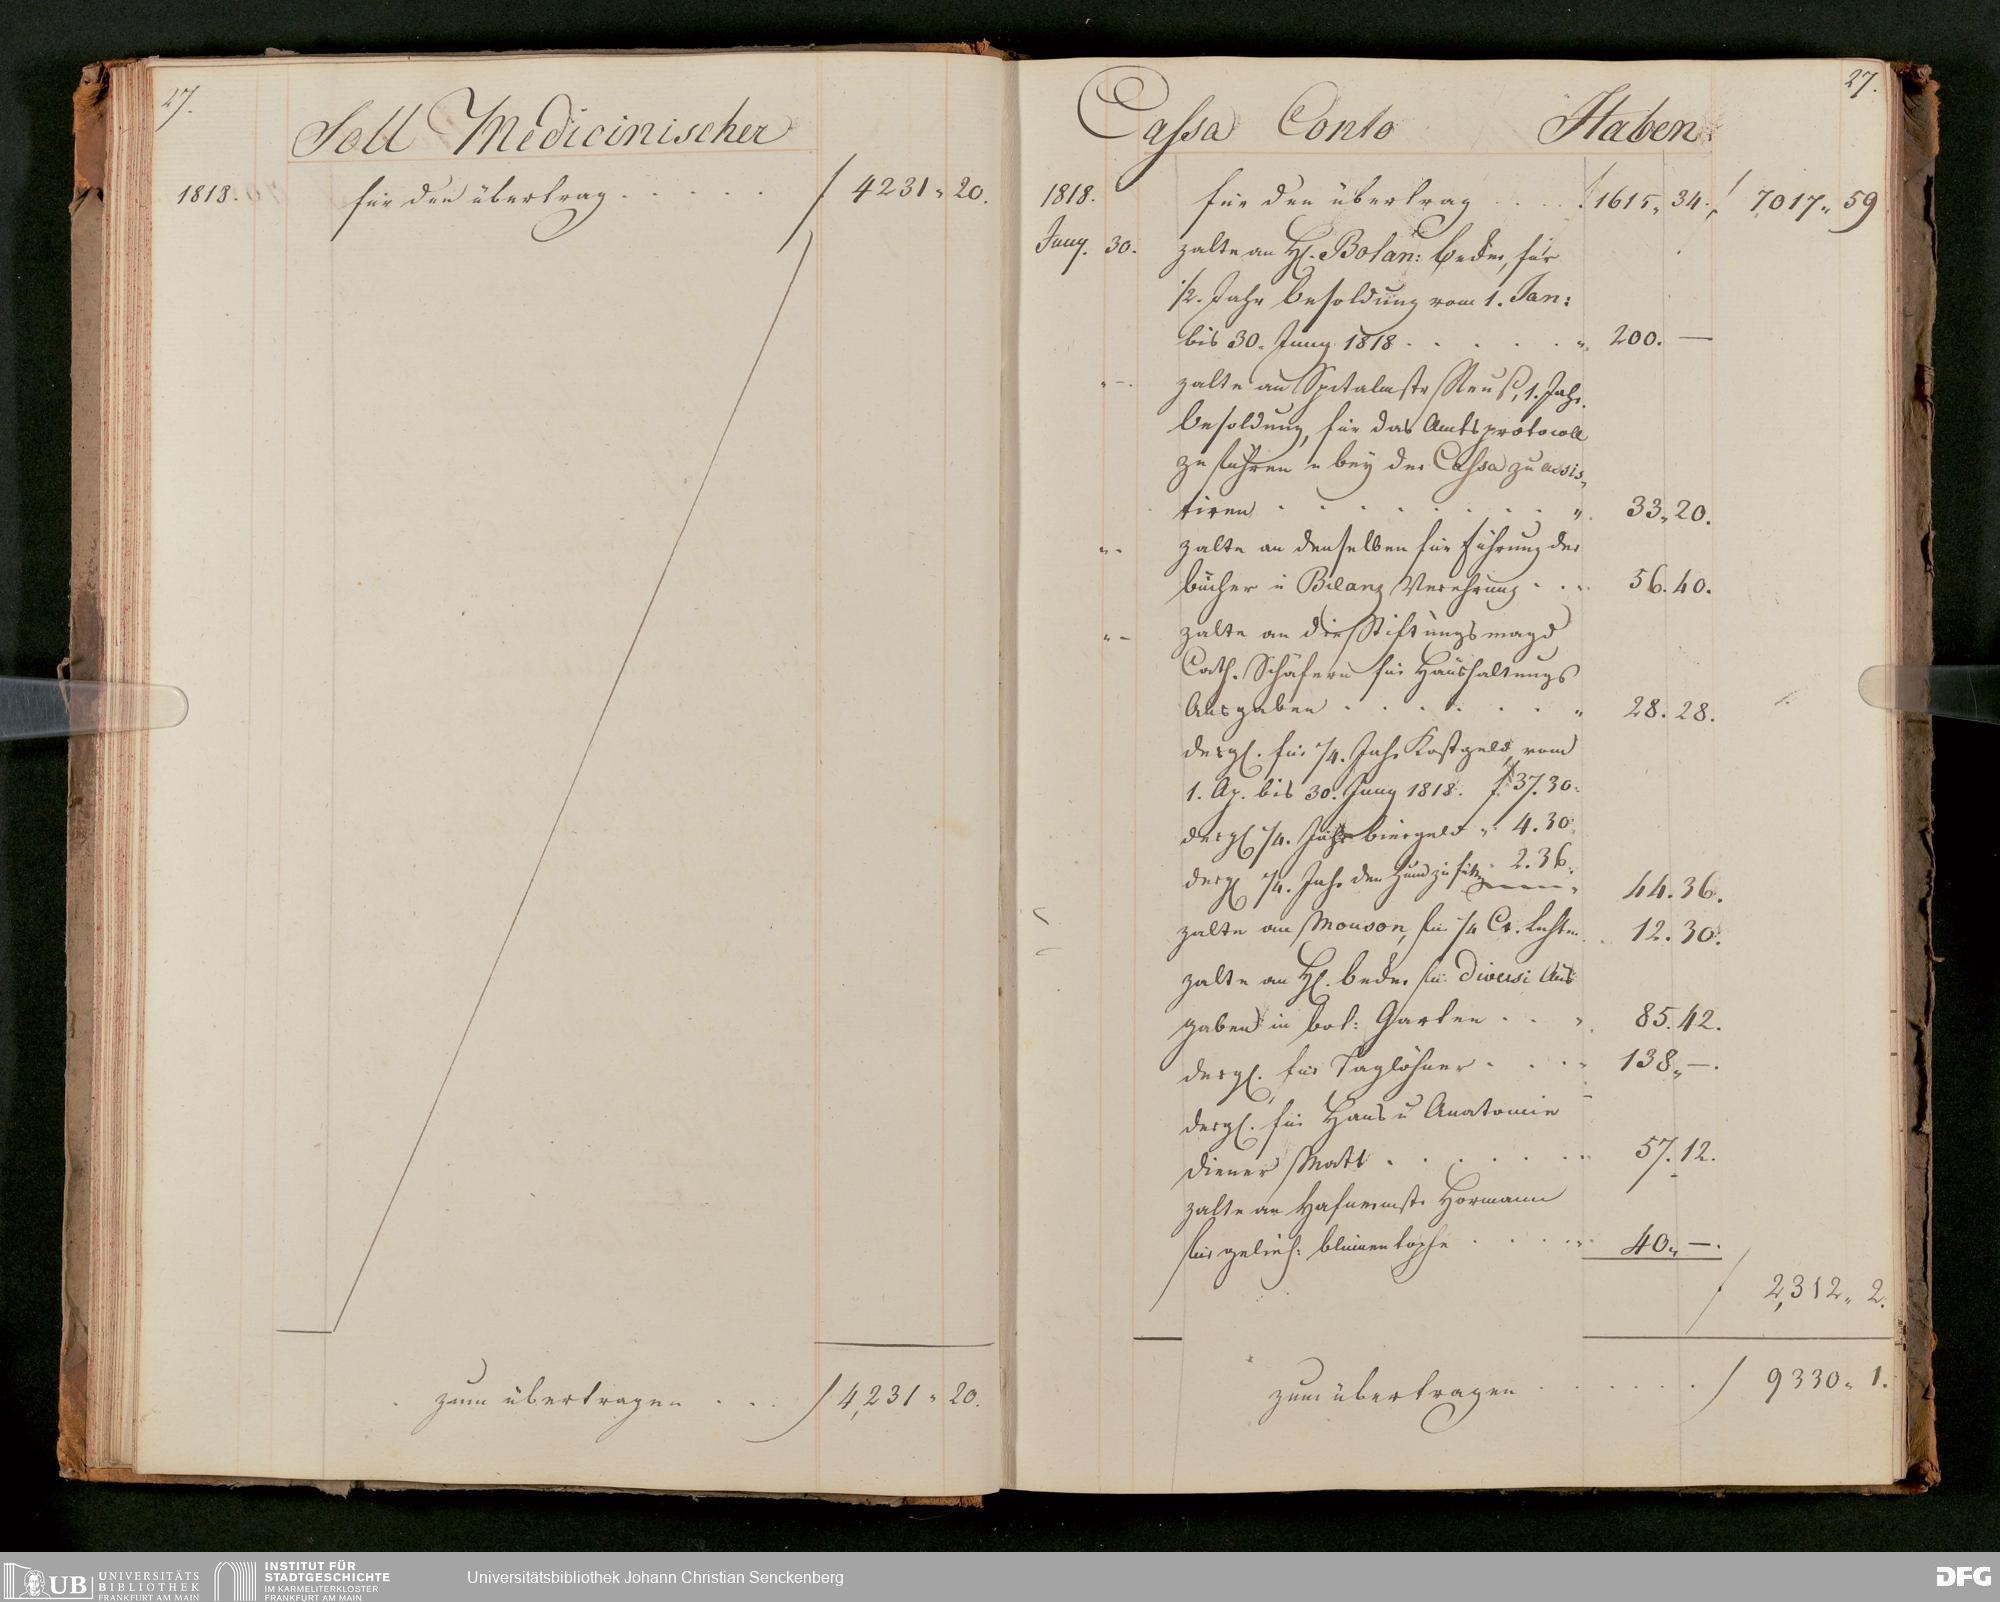 27.
Soll Medicinischer
1818. für den übertrag . . . . . f 4231 „ 20.
zum übertragen . . . f 4,231 „ 20.
27.
Cassa Conto Haben
1818. für den übertrag . . . . f 1615 „ 34. f 7017 „ 59
Juny. 30. zalte an H. Botan: Beder, für
1/2. Jahr Besoldung vom 1. Jan:
bis 30. Juny 1818 . . . . . „ 200. —
„ – . zalte an Spitalmstr Reuß, 1. Jahr
Besoldung, für das Amtsprotocoll
zu führen u bey der Cassa zu assis„
tiren . . . . . . . „ 33 „ 20.
„ – zalte an denselben für Führung der
bücher u Bilanz Verehrung . . . 56. 40.
„ – zalte an die Stiftungsmagd
Cath. Schäfern für Haushaltungs
Ausgaben . . . . . . „ 28. 28.
desgl. für 1/4. Jahr Kostgeld, vom
1. Ap. bis 30. Juny 1818. f 37. 30.
desgl 1/4. Jahr biergeld „ 4. 30.
desgl 1/4. Jahr den Hund zu fütt „ 2. 36. „ 44. 36.
zalte an Mouson, für 1/4 Ct. Lichter . 12. 30.
zalte an H. Beder für Diversi Aus
gaben in bot: Garten . . „ 85. 42.
desgl. für Taglöhner . . . „ 138 „ — .
desgl. für Haus u Anatomie
diener Matt . . . . . . „ 57. 12.
zalte an Hafnermstr Hormann
für gelief: blumentöpfe . . . . „ 40 „ — .
f 2,312 „ 2.
zum übertragen . . . . . . f 9330 „ 1.
UB UNIVERSITÄTS
BIBLIOTHEK
FRANKFURT AM MAIN
INSTITUT FÜR
STADTGESCHICHTE
IM KARMELITERKLOSTER
FRANKFURT AM MAIN
Universitätsbibliothek Johann Christian Senckenberg
DFG